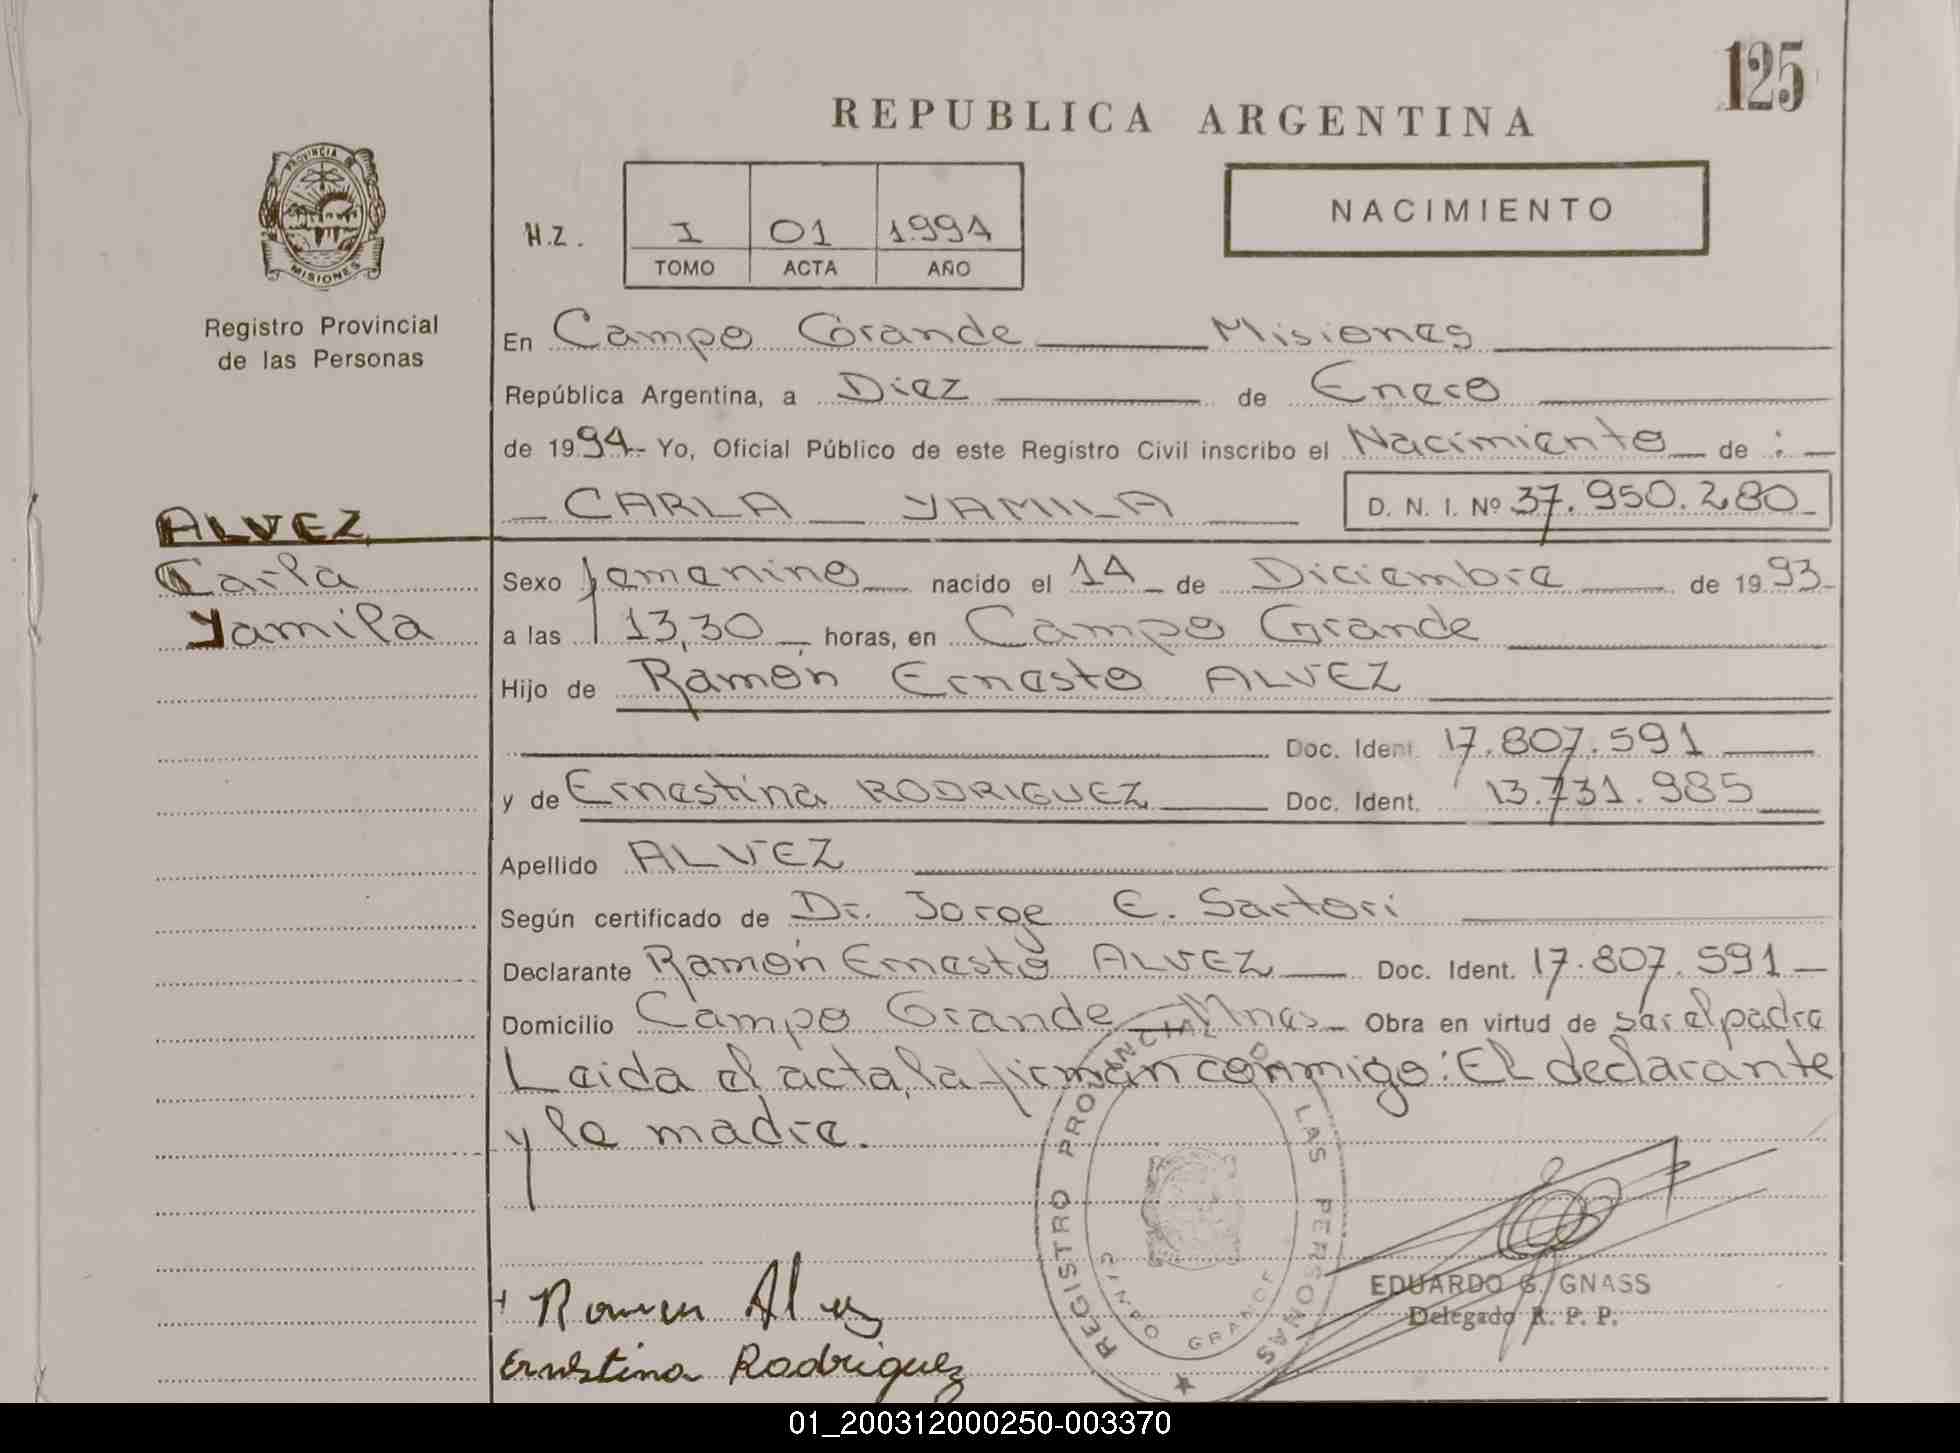 125
REPUBLICA ARGENTINA
NACIMIENTO
H.Z. I 01 1.994
TOMO ACTA AÑO
PROVINCIA DE MISIONES
Registro Provincial
de las Personas
En Campo Grande Misiones
República Argentina, a Diez de Enero
de 1994.- Yo, Oficial Público de este Registro Civil inscribo el Nacimiento de :
CARLA YAMILA D. N. I. Nº 37.950.280
ALVEZ
Carla
Yamila
Sexo femenino nacido el 14 de Diciembre de 1993
a las 13,30 horas, en Campo Grande
Hijo de Ramón Ernesto ALVEZ
Doc. Ident. 17.807.591
y de Ernestina RODRIGUEZ Doc. Ident. 13.731.985
Apellido ALVEZ
Según certificado de Dr. Jorge E. Sartori
Declarante Ramón Ernesto ALVEZ Doc. Ident. 17.807.591
Domicilio Campo Grande Mnes Obra en virtud de ser el padre
Leida el acta, la firman conmigo: El declarante
y la madre.
REGISTRO PROVINCIAL DE LAS PERSONAS
CAMPO GRANDE
EDUARDO G. GNASS
Delegado R. P. P.
Ramon Alvez
Ernestina Rodriguez
01_200312000250-003370